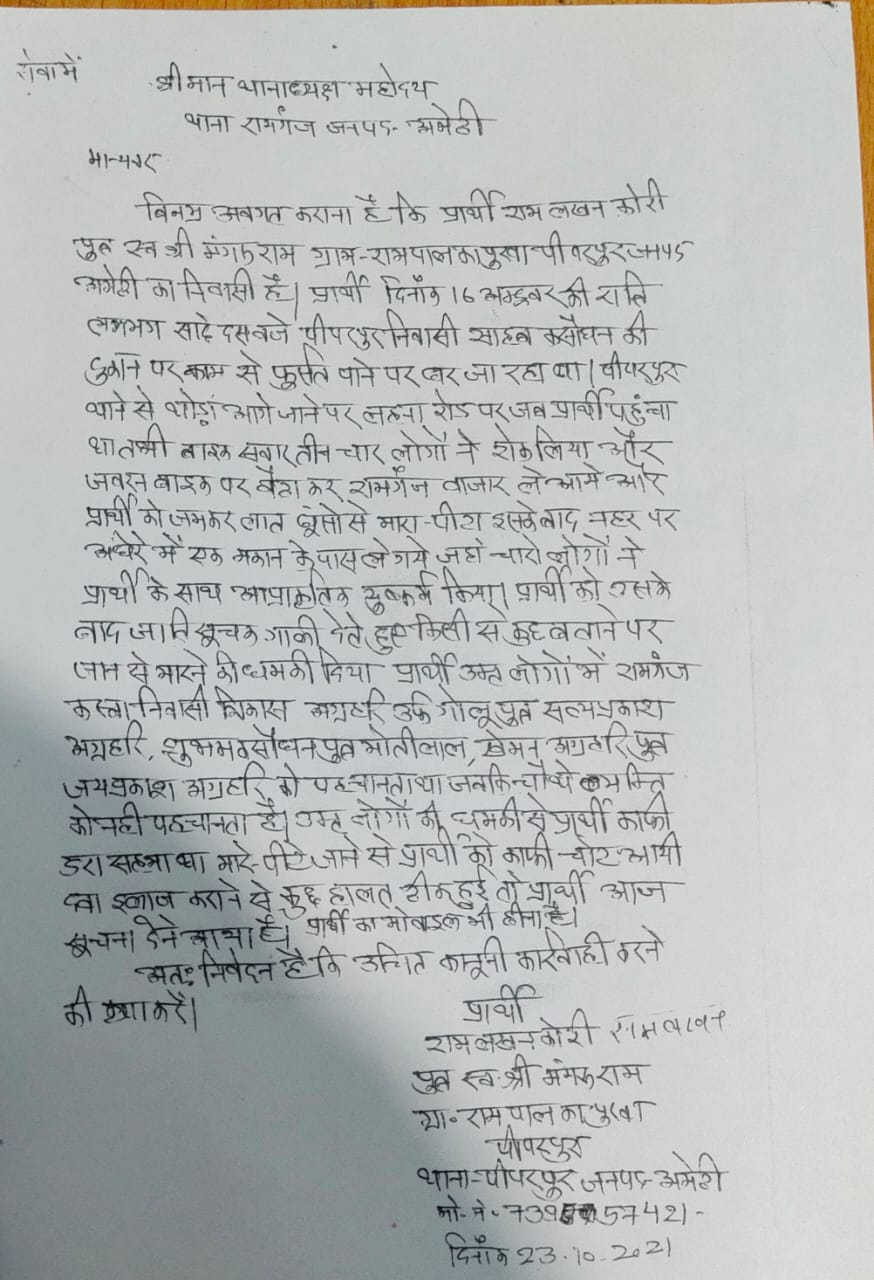 सेवामें
श्रीमान थानाध्यक्ष महोदय
थाना रामगंज जनपद- अमेठी
मान्यवर
विनम्र अवगत कराना है कि प्रार्थी राम लखन कोरी
पुत्र स्व श्री मंगरू राम ग्राम-रामपाल का पुरवा पीपरपुर जनपद
अमेठी का निवासी है। प्रार्थी दिनाँक 16 अक्टूबर की रात्रि
लगभग साढ़े दस बजे पीपरपुर निवासी साहब कसौधन की
दुकान पर काम से फुर्सत पाने पर घर जा रहा था। पीपरपुर
थाने से थोड़ा आगे जाने पर रोड पर जब प्रार्थी पहुंचा
था तभी बाइक सवार तीन चार लोगों ने रोक लिया और
जबरन बाइक पर बैठा कर रामगंज बाजार ले आये और
प्रार्थी को जमकर लात घूंसो से मारा-पीटा इसके बाद नहर पर
अंधेरे में एक मकान के पास ले गये जहां चारो लोगों ने
प्रार्थी के साथ आप्राकृतिक दुष्कर्म किया। प्रार्थी को उसके
बाद जाति सूचक गाली देते हुए किसी से कुछ बताने पर
जान से मारने की धमकी दिया प्रार्थी उक्त लोगों में रामगंज
कस्बा निवासी विकास अग्रहरि उर्फ गोलू पुत्र सत्यप्रकाश
अग्रहरि, शुभम कसौधन पुत्र मोतीलाल, खेमन अग्रहरि पुत्र
जयप्रकाश अग्रहरि को पहचानता था जबकि चौथे व्यक्ति
को नही पहचानता है। उक्त लोगों की धमकी से प्रार्थी काफी
डरा सहमा था मारे-पीटे जाने से प्रार्थी को काफी चोट आयी
दवा इलाज कराने से कुछ हालत ठीक हुई तो प्रार्थी आज
सूचना देने आया है। प्रार्थी का मोबाइल भी छीना है।
अतः निवेदन है कि उचित कानूनी कार्रवाही करने
की कृपा करें।
प्रार्थी
राम लखन कोरी रामलखन
पुत्र स्व. श्री मंगरू राम
ग्रा. राम पाल का पुरवा
पीपरपुर
थाना-पीपरपुर जनपद-अमेठी
मो. नं.
दिनाँक 23.10.2021